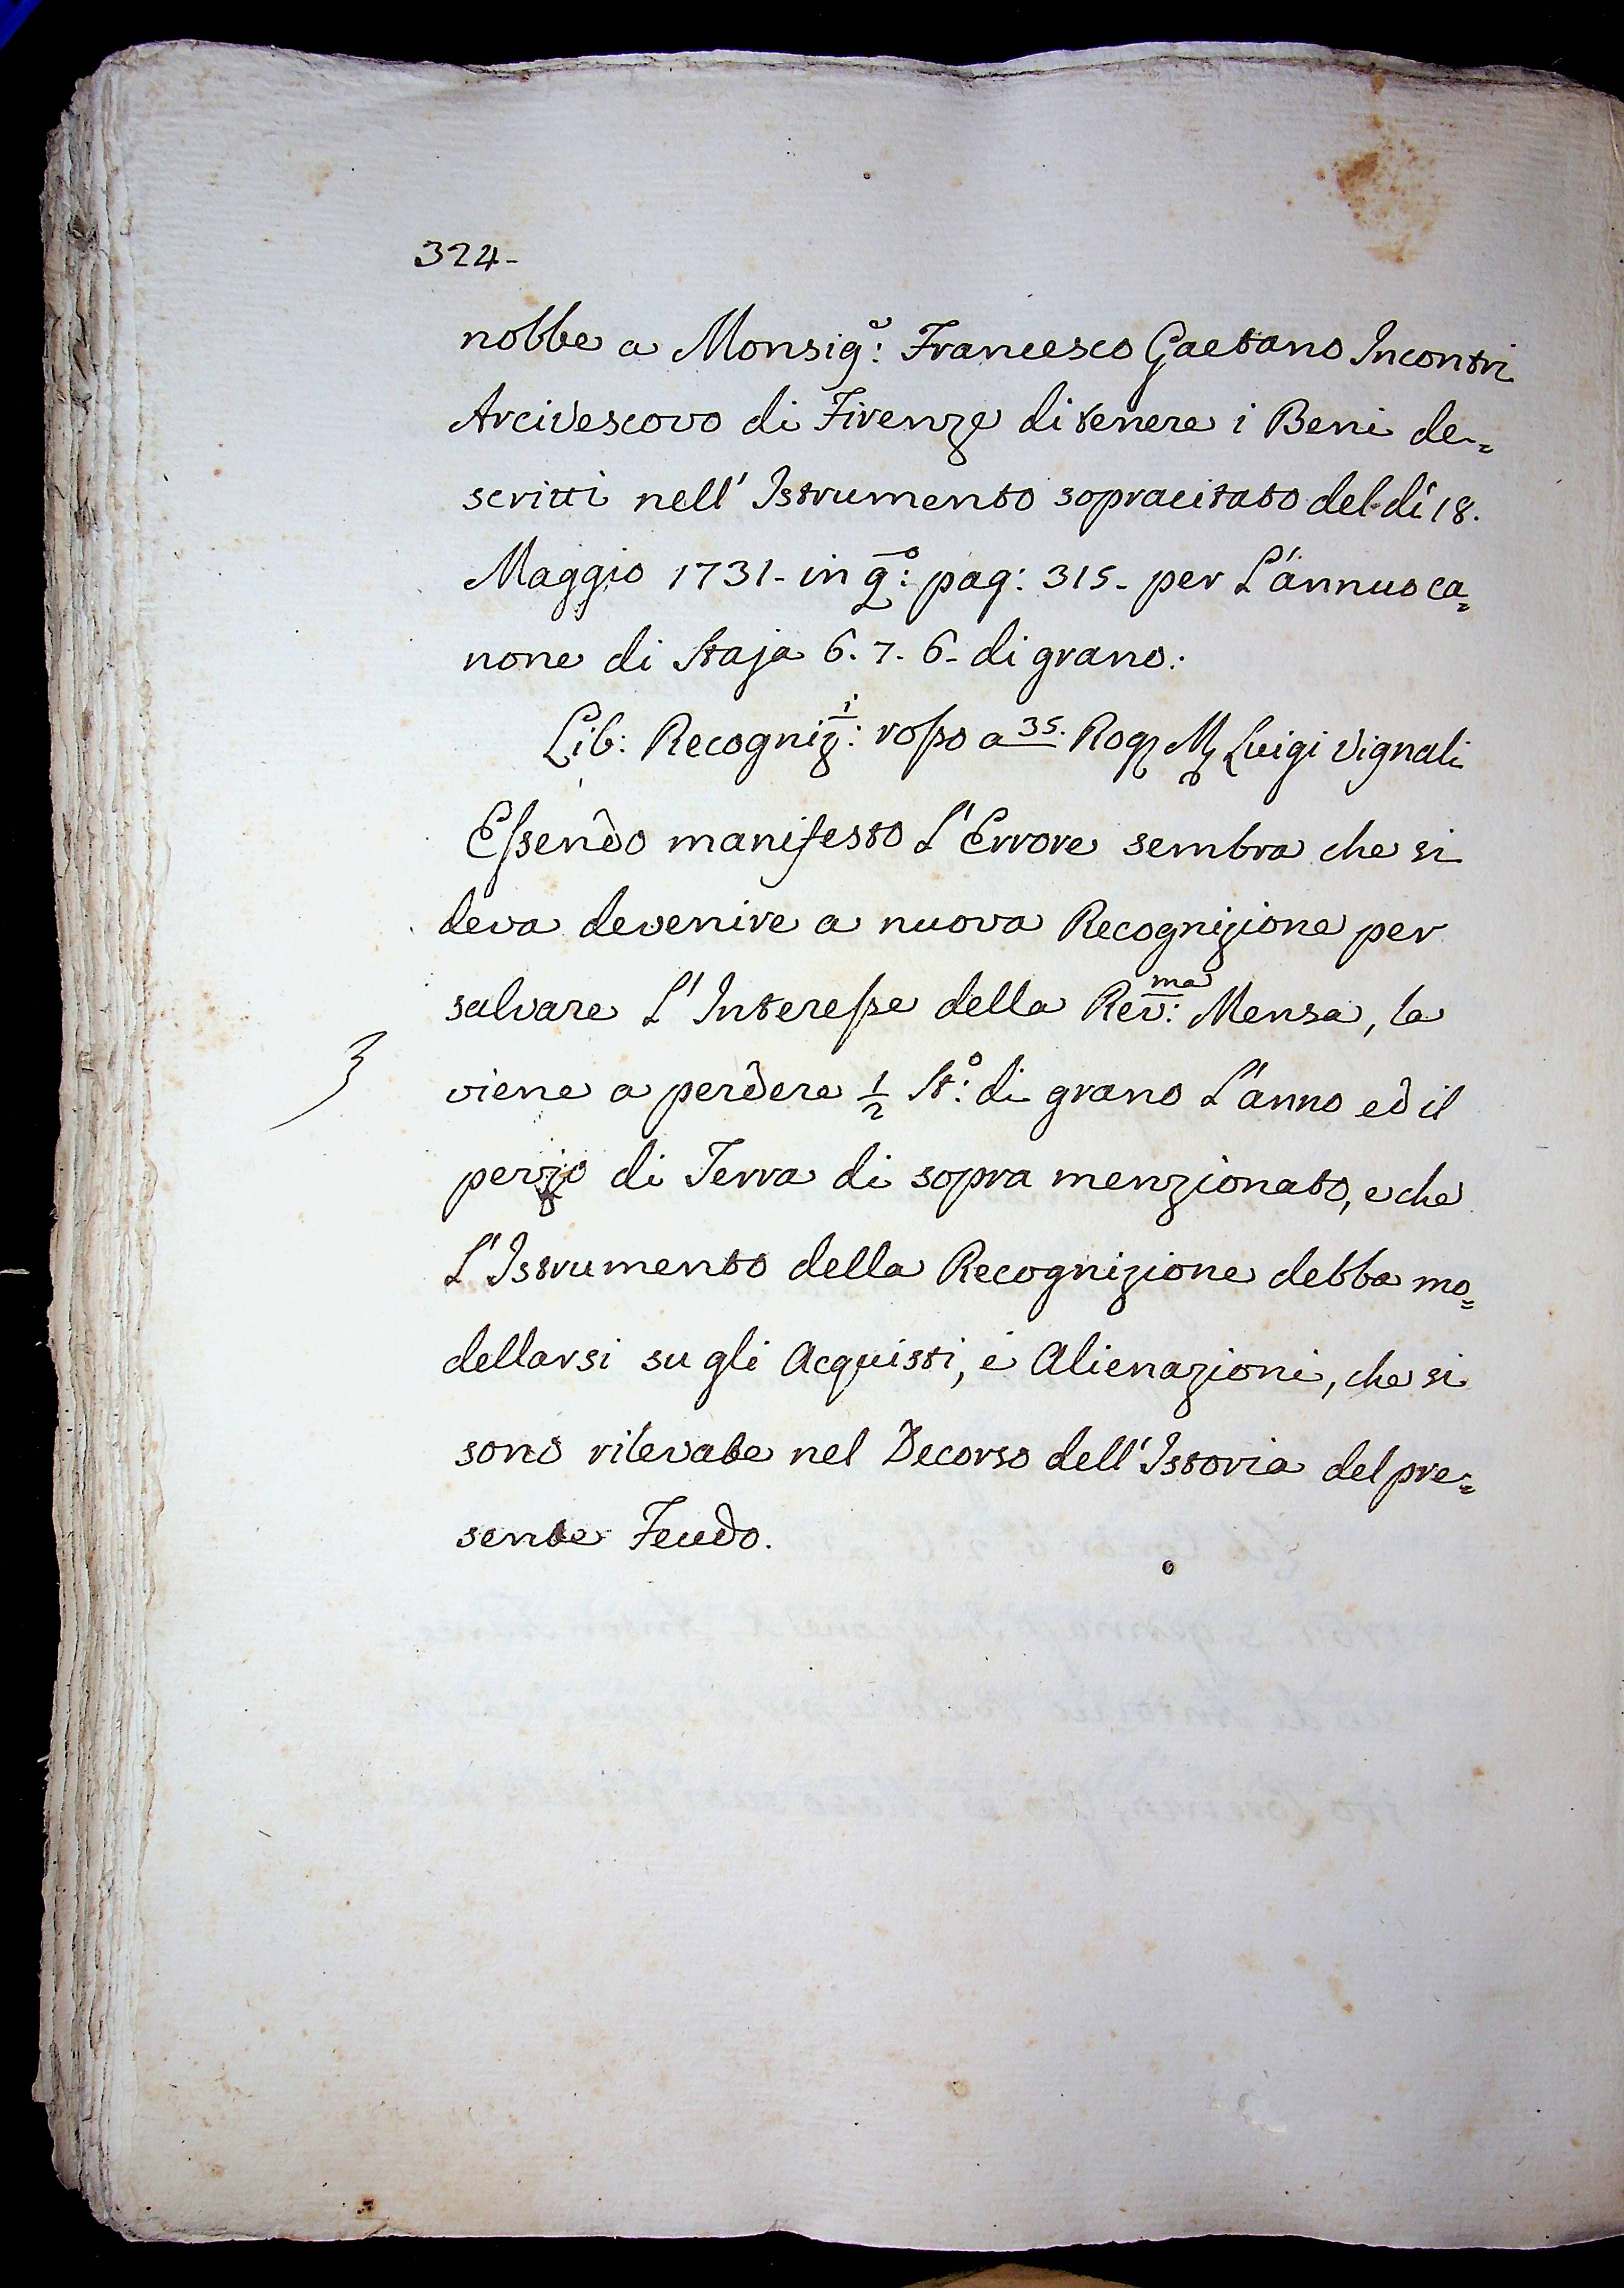 324-
nobbe a Monsig:e Francesco Gaetano Incontri
Arcivescovo di Firenze di tenere i Beni de=
scritti nell' Istrumento sopracitato del dì 18.
Maggio 1731- in q:o pag: 315- per L'annuo ca=
none di Staja 6. 7. 6- di grano.
Lib: Recogniz:i rosso a 35. Rog Luigi Vignali
Essendo manifesto L'Errore sembra che si
deva devenire a nuova Recognizione per
salvare L'Interesse della Rev:ma Mensa, la
3 viene a perdere 1/2 St:o di grano L'anno ed il
di Terra di sopra menzionato, e che
L'Istrumento della Recognizione debba mo=
dellarsi su gli Acquisti, e Alienazioni, che si
sono rilevate nel Decorso dell'Istoria del pre=
sente Feudo.